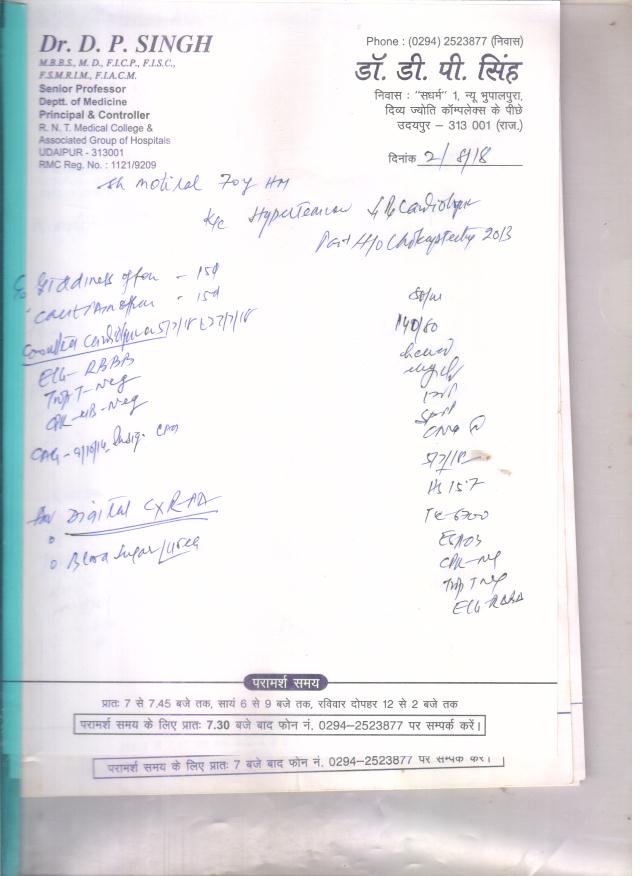 Dr. D. P. SINGH
M.B.B.S., M. D., F.I.C.P., F.I.S.C.,
F.S.M.R.I.M., F.I.A.C.M.
Senior Professor
Deptt. of Medicine
Principal & Controller
R. N. T. Medical College &
Associated Group of Hospitals
UDAIPUR - 313001
RMC Reg. No. : 1121/9209
Phone : (0294) 2523877 (निवास)
डॉ. डी. पी. सिंह
निवास : "सधर्म" 1, न्यू भुपालपुरा,
दिव्य ज्योति कॉम्पलेक्स के पीछे
उदयपुर – 313 001 (राज.)
दिनांक 2/8/18
Sh Motilal 70y HM
K/c Hypertension
Past H/o 2013
Giddiness off on - 15d
- 15d
5/7/18
ECG- RBBB
Trop T-Neg
CPK-MB-Neg
CAG - 9/10/16, Insig. CAD
140/80
5/7/18
Hb 15.7
TC-6700
CPK-Neg
Trop T Neg
ECG-RBBB
Adv Digital CXR-PA
Blood Sugar/Urea
परामर्श समय
प्रातः 7 से 7.45 बजे तक, सायं 6 से 9 बजे तक, रविवार दोपहर 12 से 2 बजे तक
परामर्श समय के लिए प्रातः 7.30 बजे बाद फोन नं. 0294–2523877 पर सम्पर्क करें।
परामर्श समय के लिए प्रातः 7 बजे बाद फोन नं. 0294–2523877 पर सम्पर्क करें।